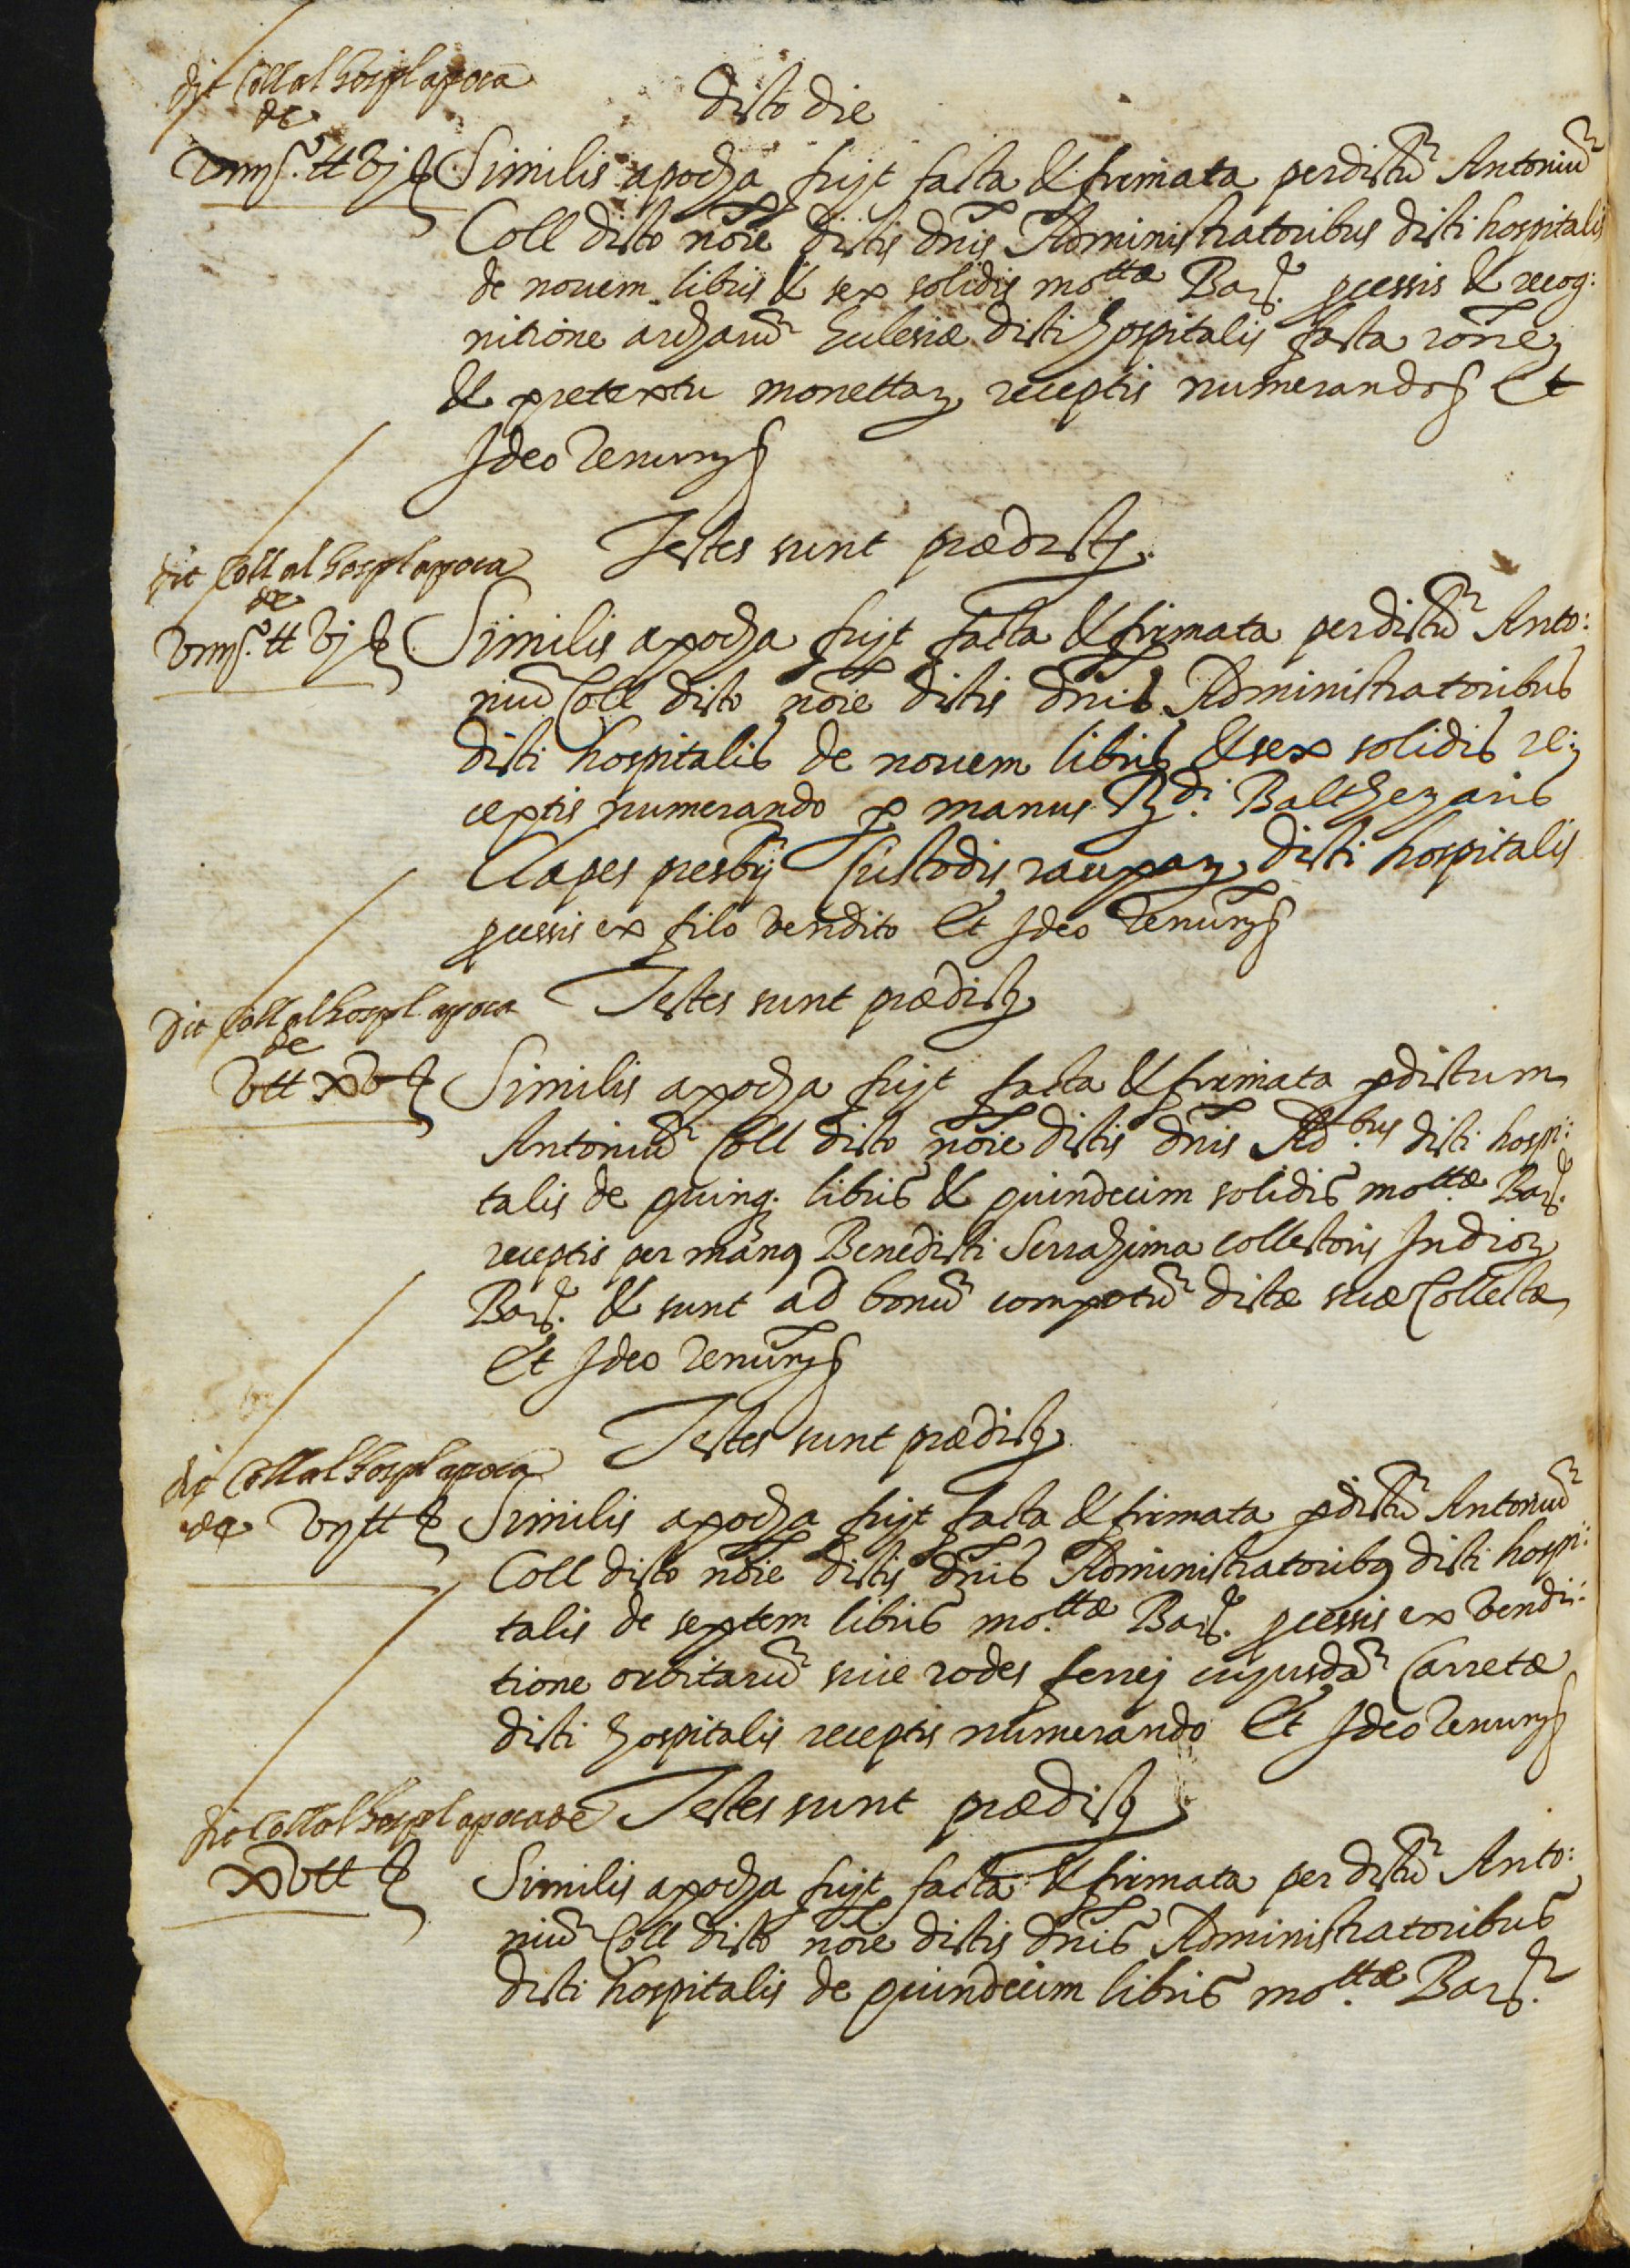 dit Coll al hospl apoca
de
dicto die
viiij s. ℔ vj ß Similis apocha fuit facta & firmata per dictũ Antoniũ
Coll dicto nõie dictis dñis Administratoribus dicti hospitalis
de novem libris & sex solidis mottæ Barẽ. pcessis & recog:
nitione archarũ Eclesiæ dicti hospitalis facta rõne
& pretextu monettaꝝ receptis numerando Et
Ideo Renunꝭ
Testes sunt prædictj.
dit Coll al hospl apoca
de
viiij ℔ vj ß Similis apocha fuit facta & firmata per dictũ Anto:
niũ Coll dicto nõie dictis dñis Administratoribus
dicti hospitalis de novem libris & sex solidis re:
ceptis numerando p manus Rdi. Balthezaris
Clapes presbŷ Custodis raupaꝝ dicti hospitalis
pcessis ex filo vendito Et Ideo Renunꝭ
Testes sunt prædictj
dit Coll al hospl apoca
de
v ℔ xv ß Similis apocha fuit facta & firmata p dictum
Antoniũ Coll dicto nõie dictis dñis Ad.bus dicti hospi:
talis de quinq. libris & quindecim solidis mottæ Barẽ.
receptis per manꝯ Benedicti Serrahima collectoris Indioꝝ
Barẽ. & sunt ad bonũ compotũ dictæ suæ Collectæ
Et Ideo Renunꝭ
Testes sunt prædictj
dit Coll al hospl apoca
de vij ℔ ß Similis apocha fuit facta & firmata p dictũ Antoniũ
Coll dicto nõie dictis dñis Administratoribꝯ dicti hospi:
talis de septem libris mo.ttæ Barẽ. pcessis ex vendi:
tione orbitarũ sive rodes ferrej cujusdã Carretæ
dicti hospitalis receptis numerando Et Ideo Renunꝭ
Testes sunt prædictj
dit Coll al hospl apoca de
xv ℔ ß Similis apocha fuit facta & firmata per dictũ Anto:
niũ Coll dicto nõie dictis dñis Administratoribus
dicti hospitalis de quindecim libris mo.ttæ Barẽ.